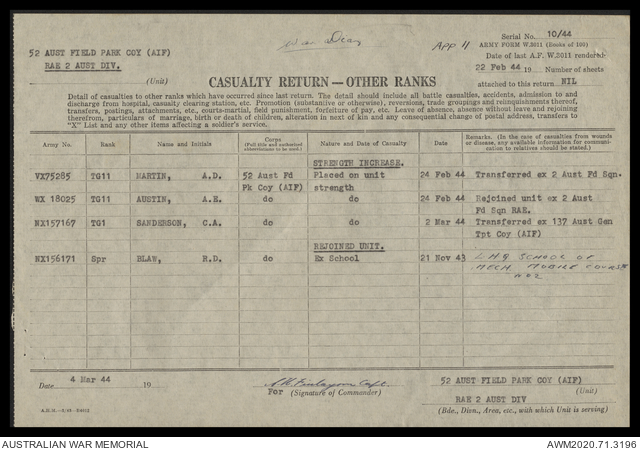 War Diary
APP 11
Serial No. 10/44
ARMY FORM W.3011 (Books of 100)
52 AUST FIELD PARK COY (AIF)
Date of last A.F. W.3011 rendered
RAE 2 AUST DIV.
22 Feb 44 19 Number of sheets
(Unit)
CASUALTY RETURN—OTHER RANKS
attached to this return NIL
Detail of casualties to other ranks which have occurred since last return. The detail should include all battle casualties, accidents, admission to and
discharge from hospital, casualty clearing station, etc. Promotion (substantive or otherwise), reversions, trade groupings and relinquishments thereof,
transfers, postings, attachments, etc., courts-martial, field punishment, forfeiture of pay, etc. Leave of absence, absence without leave and rejoining
therefrom, particulars of marriage, birth or death of children, alteration in next of kin and any consequential change of postal address, transfers to
"X" List and any other items affecting a soldier's service.
Army No. Rank Name and Initials Corps (Full title and authorized abbreviations to be used.) Nature and Date of Casualty Date Remarks. (In the case of casualties from wounds or disease, any available information for communication to relatives should be stated.)
STRENGTH INCREASE.
VX75285 TG11 MARTIN, A.D. 52 Aust Fd Placed on unit 24 Feb 44 Transferred ex 2 Aust Fd Sqn.
Pk Coy (AIF) strength
WX 18025 TG11 AUSTIN, A.E. do do 24 Feb 44 Rejoined unit ex 2 Aust
Fd Sqn RAE.
NX157167 TG1 SANDERSON, C.A. do do 2 Mar 44 Transferred ex 137 Aust Gen
Tpt Coy (AIF)
REJOINED UNIT.
NX156171 Spr BLAW, R.D. do Ex School 21 Nov 43 L.H.Q SCHOOL OF
MECH. MOBILE COURSE
NO2
Date 4 Mar 44 19
For (Signature of Commander)
52 AUST FIELD PARK COY (AIF)
(Unit)
RAE 2 AUST DIV
(Bde., Divn., Area, etc., with which Unit is serving)
AUSTRALIAN WAR MEMORIAL
AWM2020.71.3196